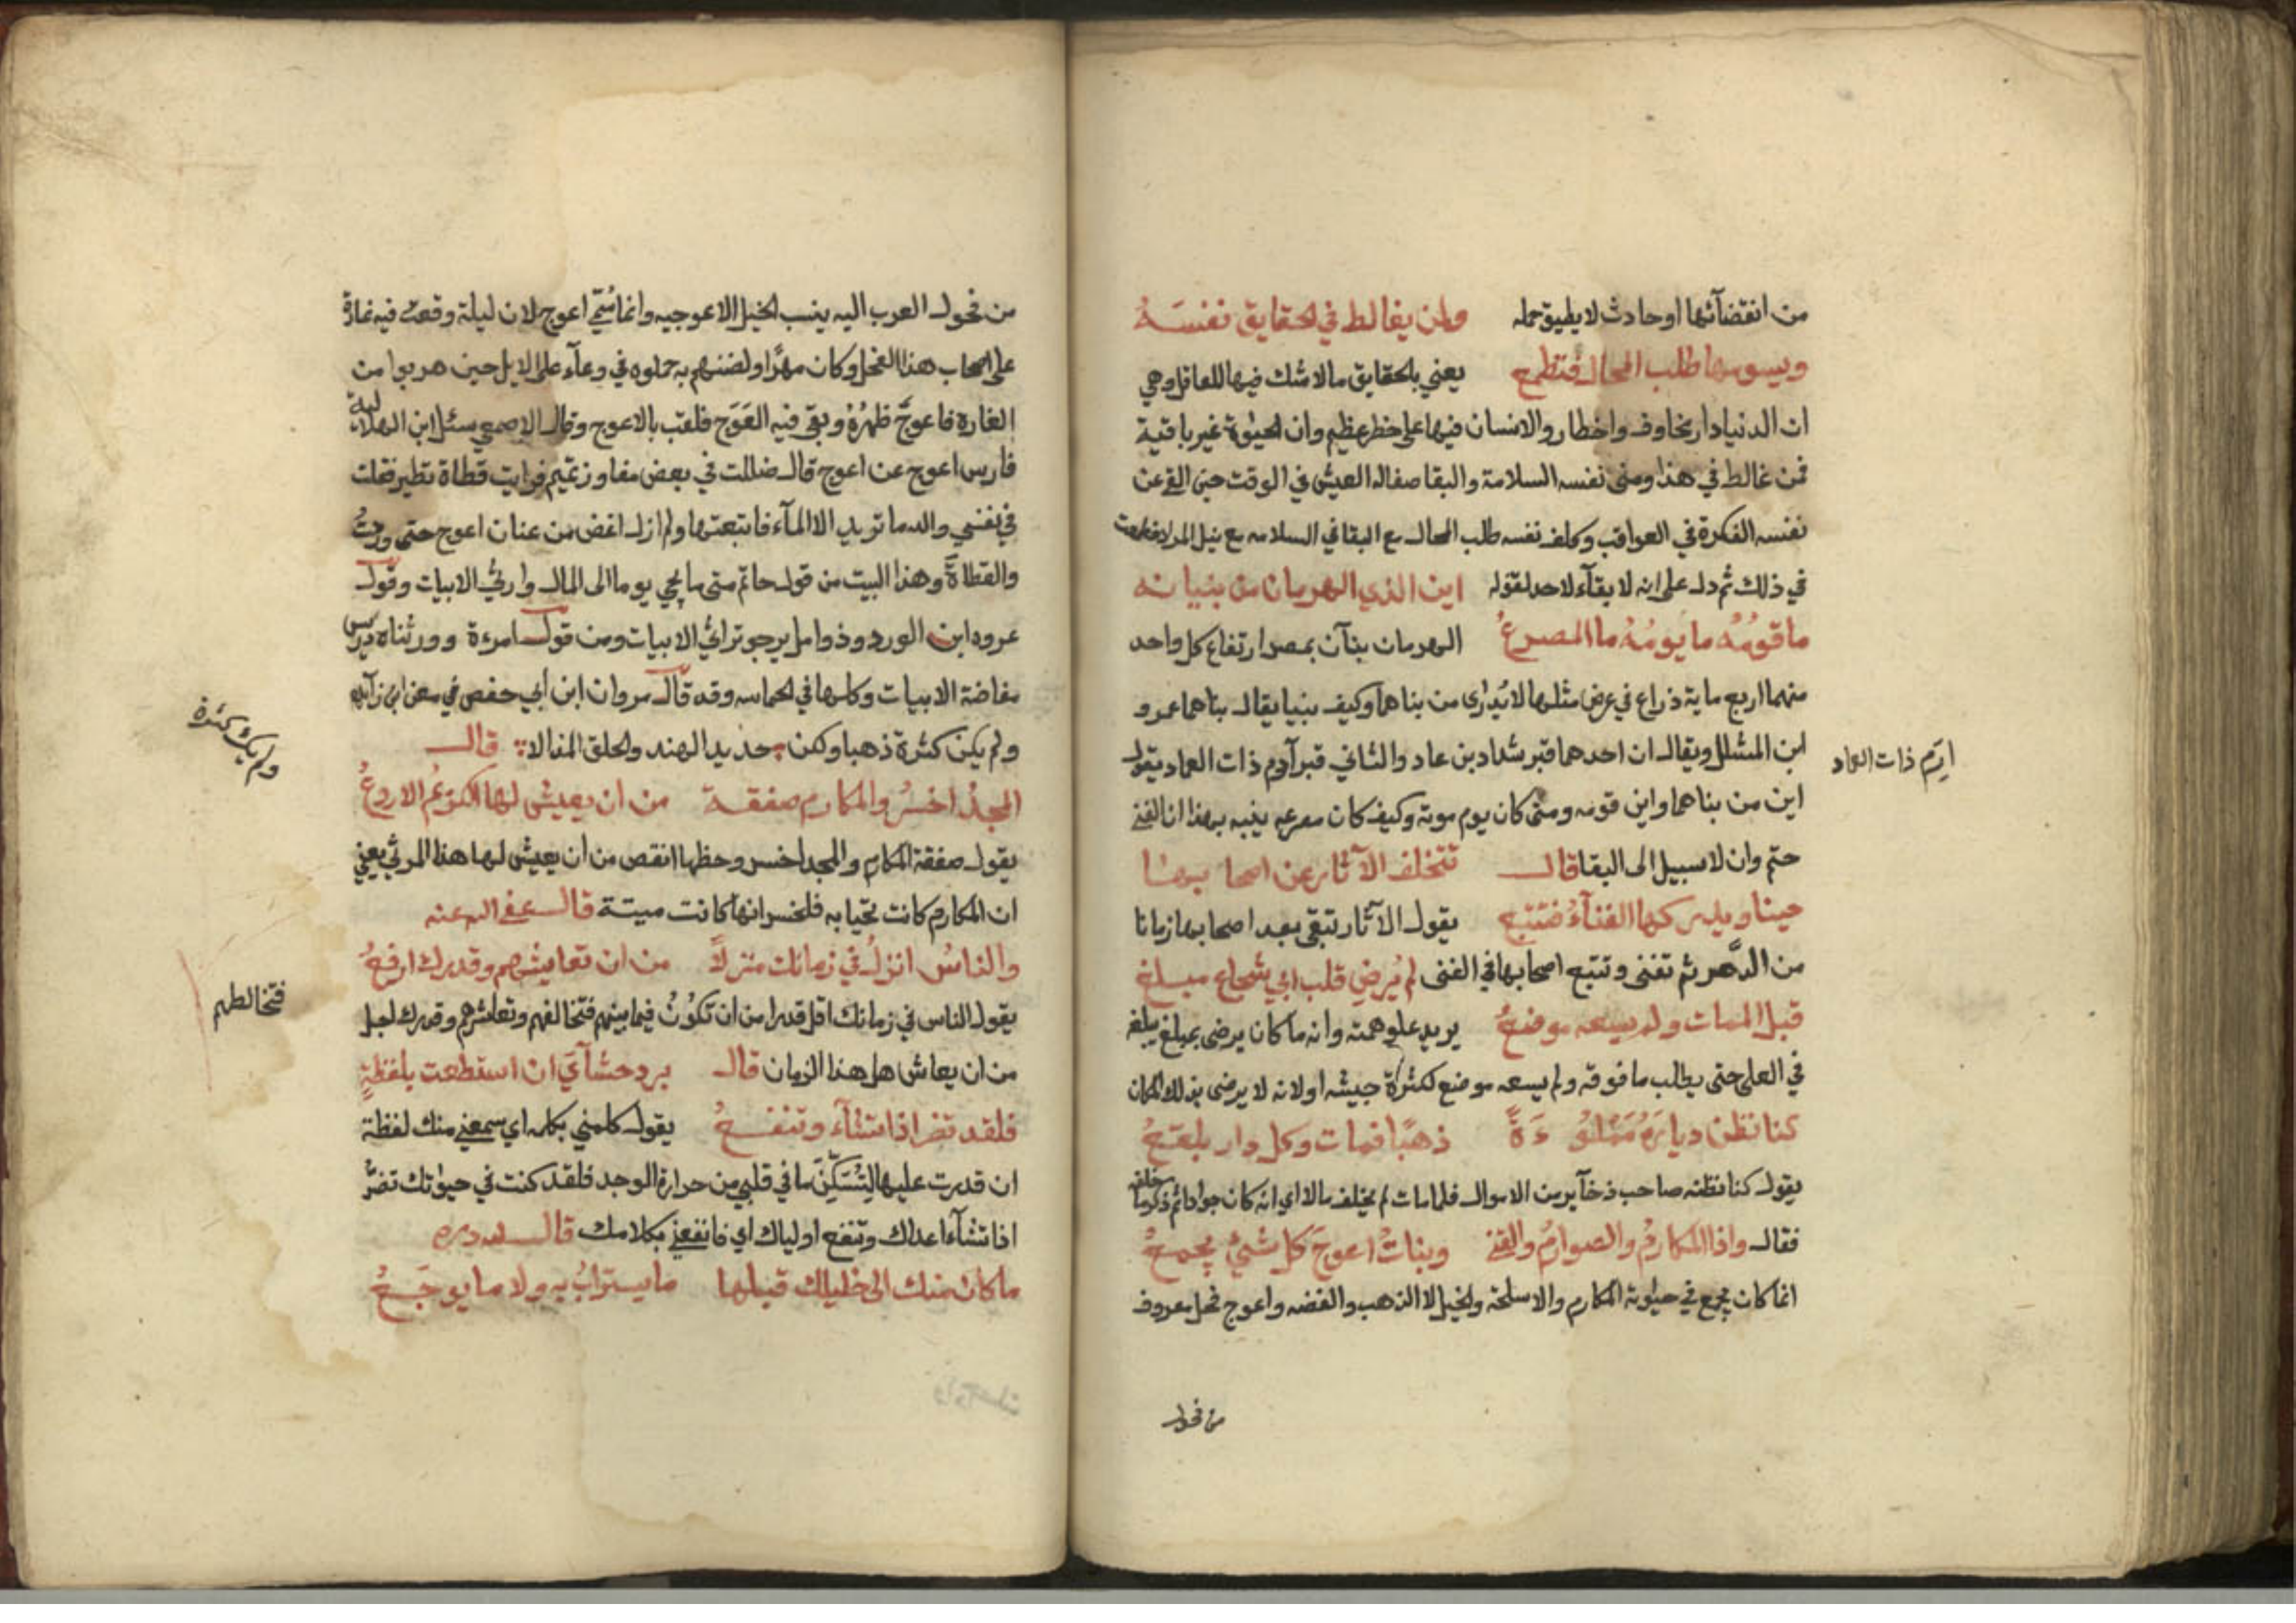 من انقضآئها او حادث لا يطيق حمله ولمن يغالط في الحقايق نفسَهُ
ويسومها طلب المحال فتطمع يعني بالحقايق ما لا شك فيها للعاقل وهي
ان الدنيا دار مخاوف واخطار والانسان فيها على خطر عظيم وان الحيوة غير باقية
فمن غالط في هذا ومنى نفسه السلامة والبقا صفا له العيش في الوقت حين القى عن
نفسه الفكرة في العواقب وكلف نفسه طلب المحال مع البقا في السلامه مع نيل المراد فطمعت
في ذلك ثم دل على انه لا بقآء لاحد لقوله اين الذي الهرمان من بنيانه
ما قومُهُ ما يومُهُ ما المصرعُ الهرمان بنآن بمصر ارتفاع كل واحد
منهما اربع ماية ذراع في عرض مثلها لا يُدارى من بناهما وكيف بنيا يقال بناهما عمرو
ابن المشلل ويقال ان احدهما قبر شداد بن عاد والثاني قبر آدم ذات العماد يقول
ارَم ذات العماد
اين من بناهما واين قومه ومتى كان يوم موته وكيف كان مصرعه ينبه بهذا ان الفنى
حتم وان لا سبيل الى البقا قال تتخلف الآثار عن اصحابها
حينا ويدركها الفنآءُ فتتبع يقول الآثار تبقى بعد اصحابها زمانا
من الدَّهر ثم تفنى وتتبع اصحابها في الفنى لم يُرضِ قلب ابي شجاع مبلغ
قبل الممات ولم يسعه موضعُ يريد علو همته وانه ما كان يرضى بمبلغ يبلغه
في العلى حتى يطلب ما فوقه ولم يسعه موضع لكثرة جيشه او لانه لا يرضى بذلك المكان
كنا نظن دياره مملوءةً ذهبًا فمات وكل دار بلقعُ
يقول كنا نظنه صاحب ذخآير من الاموال فلما مات لم يخلف مالا اي انه كان جوادا ثم ذكر ما خلفه
فقال واذا المكارمُ والصوارمُ والقنى وبناتُ اعوجَ كل شيءٍ يجمعُ
انما كان يجمع في حيوته المكارم والاسلحة والخيل لا الذهب والفضه واعوج فحل معروف
من فحول
من فحول العرب اليه ينسب الخيل الاعوجيه وانما سُمّي اعوج لان ليلة وقعت فيه غارة
على اصحاب هذا الفحل وكان مهرًا ولضنهم به حملوه في وعآء على الابل حين هربوا من
الغارة فاعوجَّ ظهرُهُ وبقى فيه العَوَج فلقب بالاعوج وقال الاصمعي سئل ابن الهلالية
فارس اعوج عن اعوج قال ضللت في بعض مفاوز تميم فرايت قطاة تطير فقلت
في نفسي والله ما تريد الا المآء فاتبعتها ولم ازل اغض من عنان اعوج حتى وردتُ
والقطاةَ وهذا البيت من قول حاتم متى ما يجي يوما الى المال وارثي الابيات وقول
عروه ابن الورد وذو امل يرجو تراثي الابيات ومن قول امرءة وورثناه دريس
مفاضة الابيات وكلها في الحماسه وقد قال مروان ابن ابي حفص في معن ابن زآيده
ولم يكن كثرة ذهبا ولكن حديد الهند والحلق المذالا قال
ولم يك كثرة
المجدُ اخسرُ والمكارم صفقة من ان يعيش لها الكريمُ الاروعُ
يقول صفقة المكارم والمجد اخسر وحظها انقص من ان يعيش لها هذا المرثي يعني
ان المكارم كانت تحيا به فلخسرانها كانت ميتة قال عفى الله عنه
والناسُ انزلُ في زمانك منزلاً من ان تعايشهم وقدرك ارفعُ
يقول الناس في زمانك اقل قدرا من ان تكوُنُ فيما بينهم فتخالفهم وتعاشرهم وقدرك اجل
فتخالطهم
من ان يعاش هل هذا الزمان قال برد حشآيَ ان استطعت بلفظةٍ
فلقد تضر اذا تشآء وتنفعُ يقول كلمني بكلمه اي سمعني منك لفظة
ان قدرت عليها لِتُسَكِّنَ ما في قلبي من حرارة الوجد فلقد كنت في حيوتك تضرُّ
اذا تشآء اعداك وتنفع اولياك اي فانفعني بكلامك قال لله دره
ما كان منك الى خليلك قبلها ما يسترابُ به ولا ما يوجَعُ